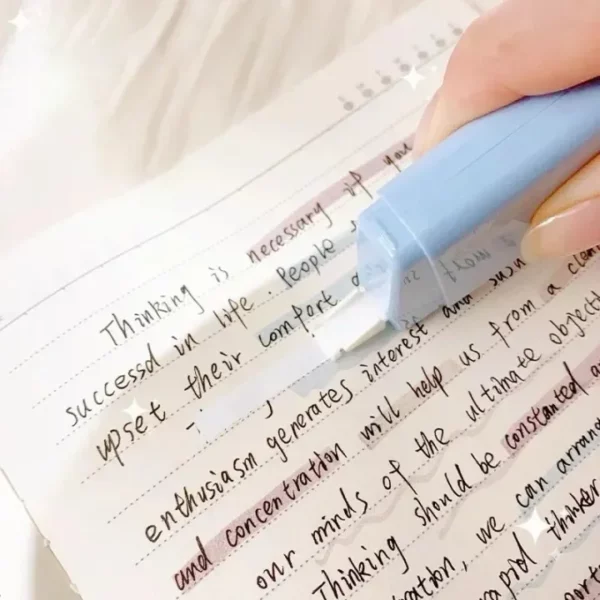 Thinking is necessary if you
successd in life. People
upset their comfort
enthusiasm generates interest and
and concentration will help us from a
our minds of the ultimate object
Thinking should be constanted
we can
rapid thinker